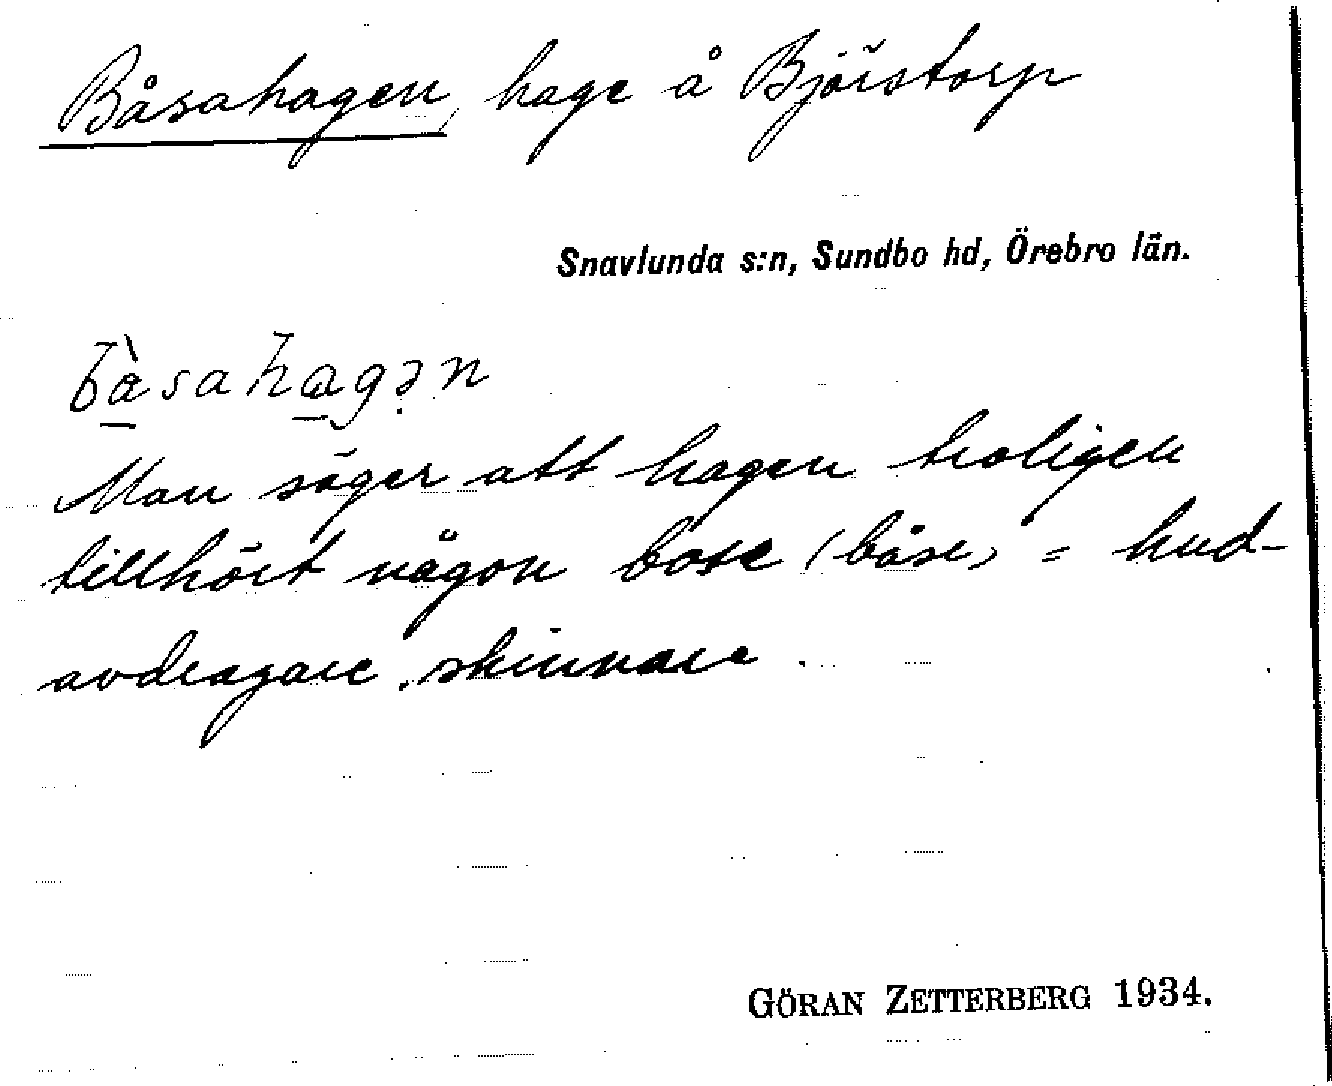 Båsahagen, hage å Björstorp
Snavlunda s:n, Sundbo hd, Örebro län.
bå̀sahagən
Man säger att hagen troligen
tillhört någon båse (båse) = hud-
avdragare, skinnare.
GÖRAN ZETTERBERG 1934.